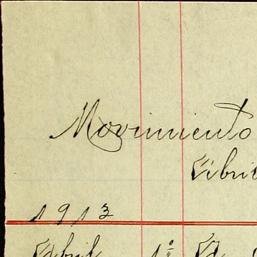 Movimiento
Libr
1913
Abril 1º